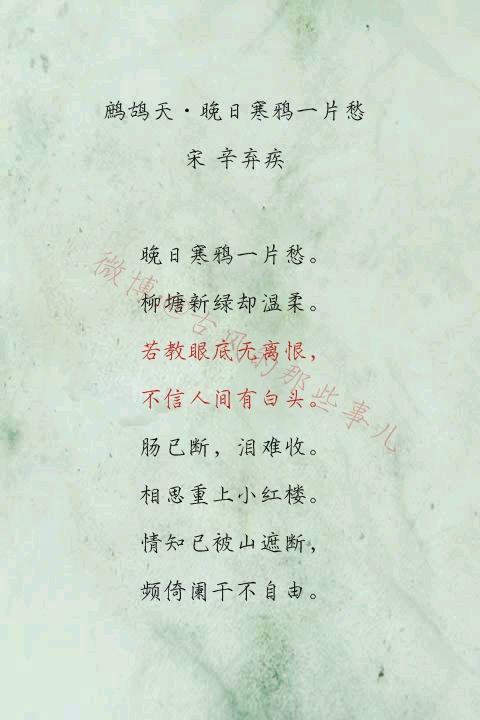 鹧鸪天·晚日寒鸦一片愁
宋 辛弃疾
晚日寒鸦一片愁。
柳塘新绿却温柔。
若教眼底无离恨，
不信人间有白头。
肠已断，泪难收。
相思重上小红楼。
情知已被山遮断，
频倚阑干不自由。